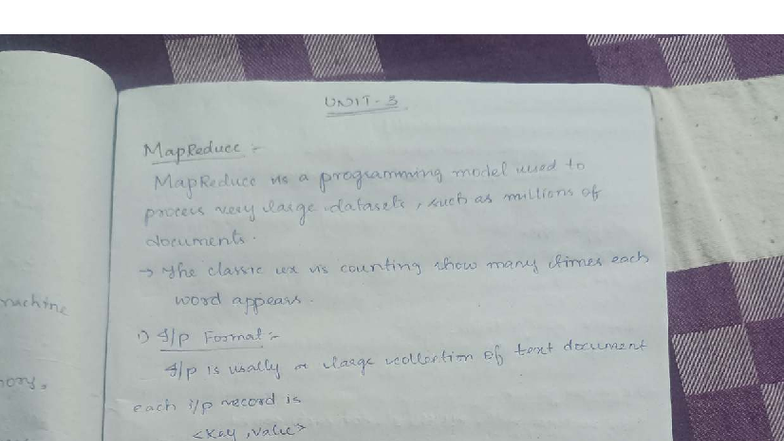 UNIT-3
MapReduce :-
MapReduce is a programming model used to
process very large datasets, such as millions of
documents.
→ The classic ex is counting how many times each
word appears.
1) I/p Format :-
I/p is usally a large collection of text document
each i/p record is
<Key, Value>
machine